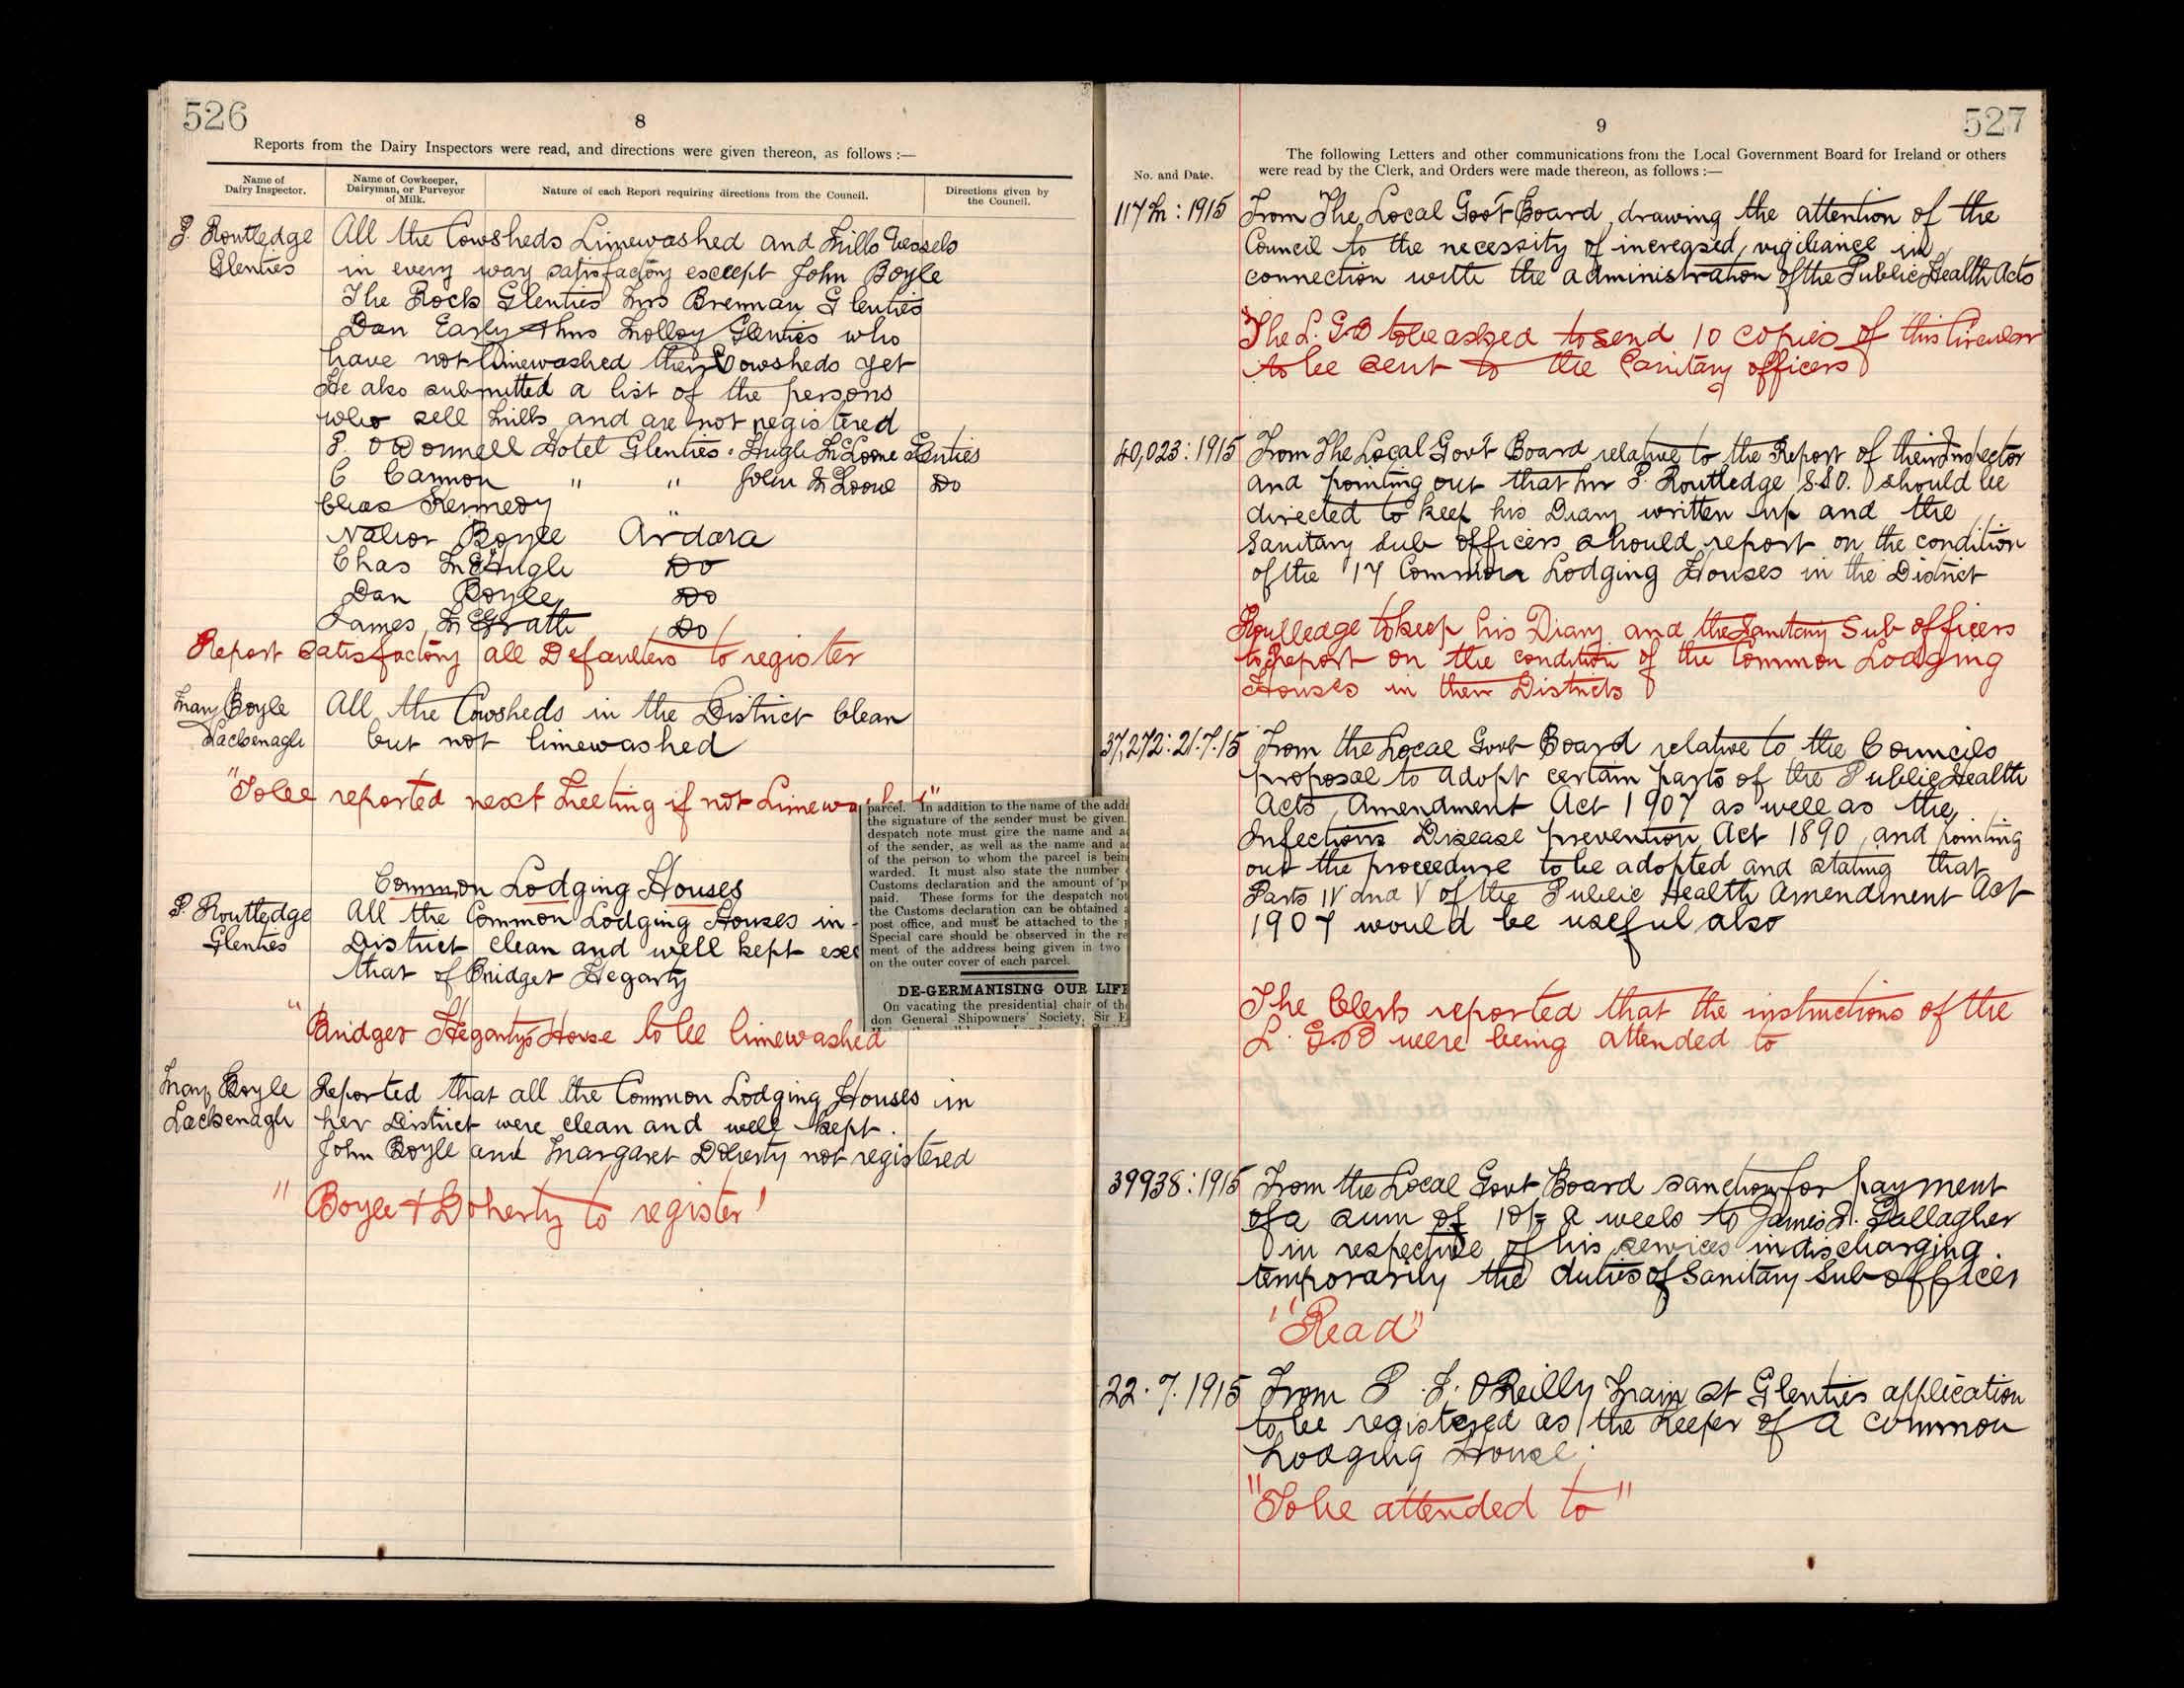 526
8
Reports from the Dairy Inspectors were read, and directions were given thereon, as follows :—
Name of Dairy Inspector.
Name of Cowkeeper, Dairyman, or Purveyor of Milk.
Nature of each Report requiring directions from the Council.
Directions given by the Council.
P. Routledge
Glenties
All the Cowsheds Limewashed and Milk Vessels
in every way satisfactory except John Boyle
The Rock Glenties Mrs Brennan Glenties
Dan Early & Mrs Molloy Glenties who
have not limewashed their Cowsheds yet
He also submitted a list of the persons
who sell milk and are not registered
P. O'Donnell Hotel Glenties. Hugh McLoone Glenties
C Cannon " " John McLoone Do
Chas Kennedy "
Boyle Ardara
Chas McHugh Do
Dan Boyle Do
James McGrath Do
Report Satisfactory all Defaulters to register
Mary Boyle
Lackenagh
All the Cowsheds in the District Clean
but not limewashed
"To be reported next Meeting if not Limewashed"
Common Lodging Houses
P. Routledge
Glenties
All the Common Lodging Houses in
District clean and well kept exc
that of Bridget Hegarty
"Bridget Hegarty's House to be limewashed
Mary Boyle
Lackenagh
Reported that all the Common Lodging Houses in
her District were clean and well kept.
John Boyle and Margaret Doherty not registered
"Boyle & Doherty to register"
parcel. In addition to the name of the add
the signature of the sender must be given.
despatch note must give the name and a
of the sender, as well as the name and a
of the person to whom the parcel is bein
warded. It must also state the number
Customs declaration and the amount of p
paid. These forms for the despatch not
the Customs declaration can be obtained a
post office, and must be attached to the p
Special care should be observed in the re
ment of the address being given in two
on the outer cover of each parcel.
DE-GERMANISING OUR LIFE
On vacating the presidential chair of the
don General Shipowners' Society, Sir
527
9
No. and Date.
The following Letters and other communications from the Local Government Board for Ireland or others
were read by the Clerk, and Orders were made thereon, as follows :—
117M : 1915
From The Local Gov't Board, drawing the attention of the
Council to the necessity of increased vigiliance in
connection with the administration of the Public Health Acts
The L. G B to be asked to send 10 copies of this Circular
to be sent to the Sanitary officers
40,023 : 1915
From The Local Gov't Board relative to the Report of their Inspector
and pointing out that Mr P. Routledge S.S.O. should be
directed to keep his Diary written up and the
Sanitary Sub officers should report on the condition
of the 17 Common Lodging Houses in the District
Routledge to keep his Diary and the Sanitary Sub officers
to report on the condition of the Common Lodging
Houses in their Districts
37,272 : 21.7.15
From the Local Govt Board relative to the Councils
proposal to adopt certain parts of the Public Health
Acts Amendment Act 1907 as well as the
Infectious Disease prevention Act 1890 and pointing
out the proceedure to be adopted and stating that
Parts IV and V of the Public Health Amendment Act
1907 would be useful also
The Clerk reported that the instructions of the
L. G B were being attended to
39938 : 1915
From the Local Govt Board sanction for payment
of a sum of 10/- a week to James Gallagher
in respective of his services in discharging
temporarily the duties of Sanitary Sub officer
"Read"
22.7.1915
From P. J. O'Reilly Main St Glenties application
to be registered as the keeper of a common
Lodging House.
"To be attended to"